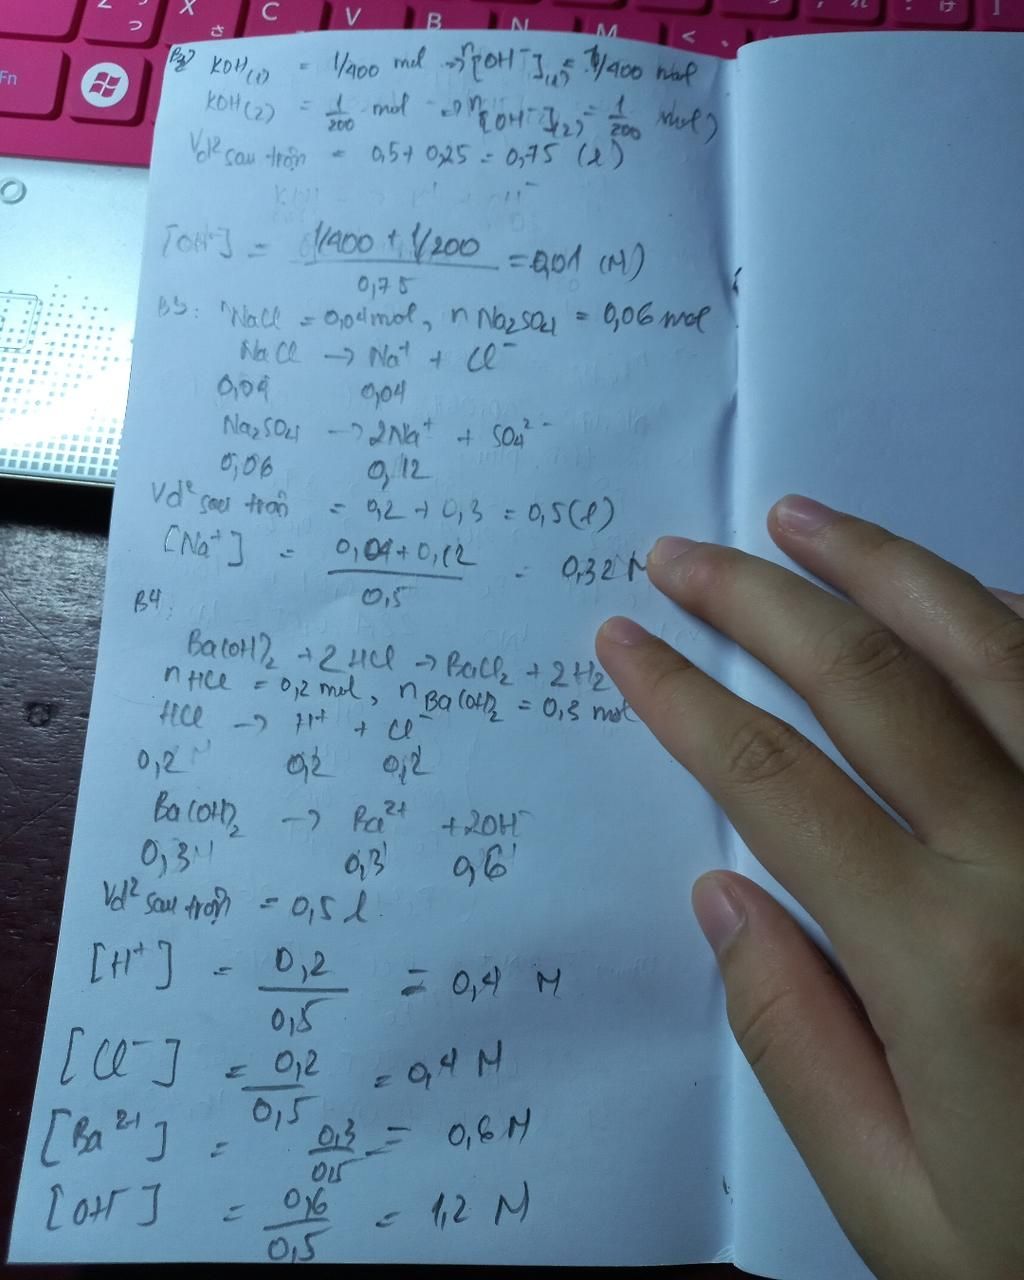 Z X C V B N M < .
つ さ
Fn
B2) KOH(1) = 1/400 mol → n[OH⁻](1) = 1/400 mol
KOH(2) = 1/200 mol → n[OH⁻](2) = 1/200 mol)
Vd² sau trộn = 0,5 + 0,25 = 0,75 (l)
[OH⁻] = (1/400 + 1/200)/0,75 = 0,01 (M)
B3: NaCl = 0,04 mol, n Na₂SO₄ = 0,06 mol
NaCl → Na⁺ + Cl⁻
0,04 0,04
Na₂SO₄ → 2Na⁺ + SO₄²⁻
0,06 0,12
Vd² sau trộn = 0,2 + 0,3 = 0,5 (l)
[Na⁺] = (0,04 + 0,12)/0,5 = 0,32 M
B4:
Ba(OH)₂ + 2HCl → BaCl₂ + 2H₂
nHCl = 0,2 mol, nBa(OH)₂ = 0,3 mol
HCl → H⁺ + Cl⁻
0,2 0,2 0,2
Ba(OH)₂ → Ba²⁺ + 2OH⁻
0,3 0,3 0,6
Vd² sau trộn = 0,5 l
[H⁺] = 0,2/0,5 = 0,4 M
[Cl⁻] = 0,2/0,5 = 0,4 M
[Ba²⁺] = 0,3/0,5 = 0,6 M
[OH⁻] = 0,6/0,5 = 1,2 M